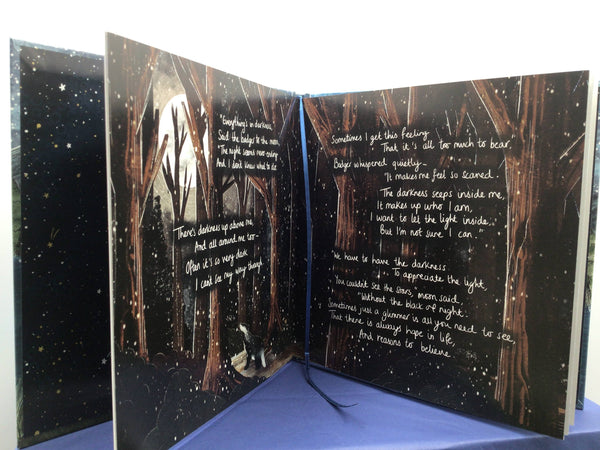 "Everything's in darkness,"
Said the badger to the moon,
"The night seems never ending
And I don't know what to do.
There's darkness up above me,
And all around me too –
Often it's so very dark
I can't see my way through.
Sometimes I get this feeling
That it's all too much to bear,"
Badger whispered quietly –
"It makes me feel so scared.
The darkness seeps inside me,
It makes up who I am,
I want to let the light inside,
But I'm not sure I can.."
"We have to have the darkness
To appreciate the light,
You couldn't see the stars," moon said
"Without the black of night.
Sometimes just a glimmer is all you need to see,
That there is always hope in life,
And reasons to believe.